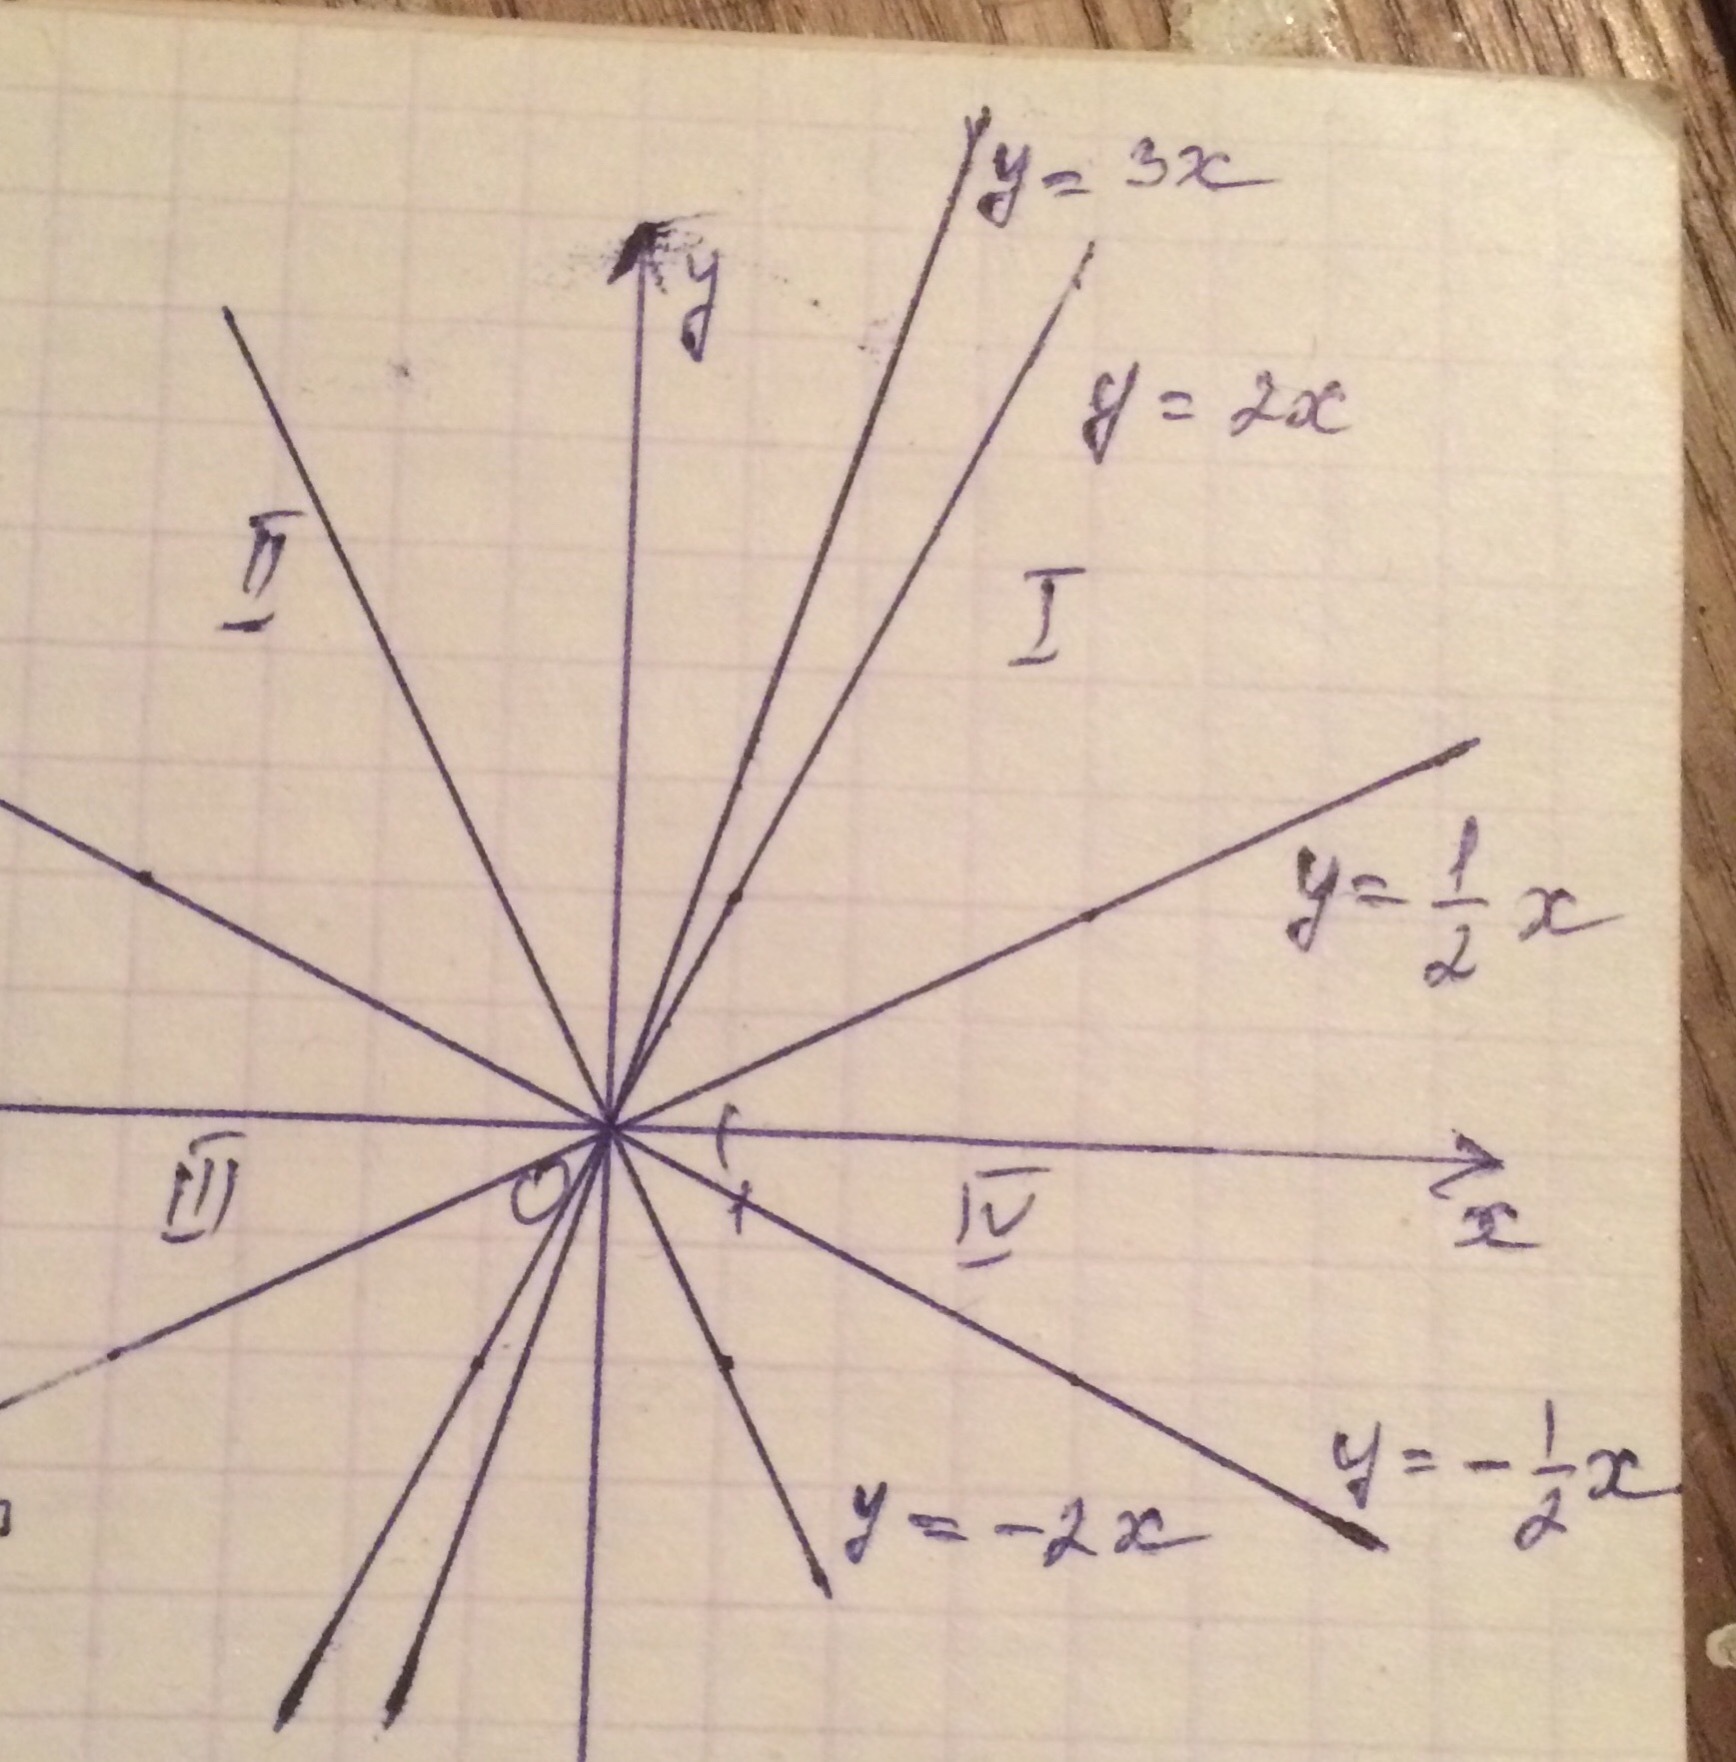 y = 3x
y
y = 2x
II
I
y = 1/2 x
III
O
1
IV
x
y = -1/2 x
y = -2x